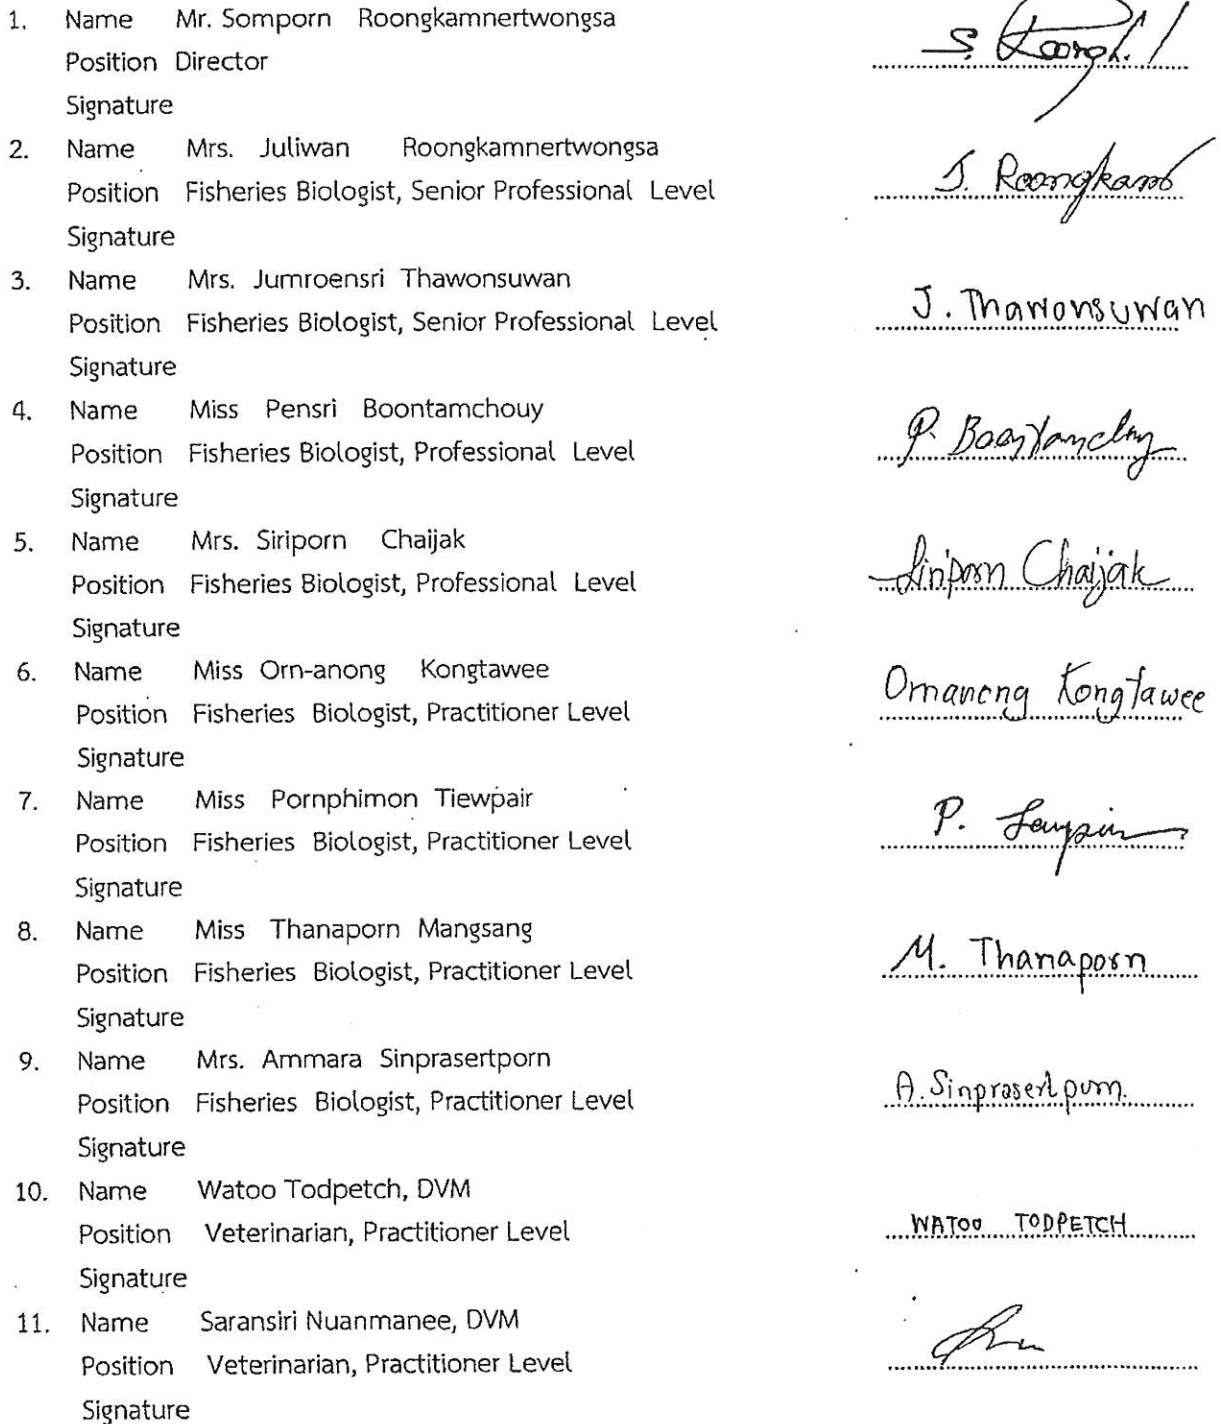 1. Name Mr. Somporn Roongkamnertwongsa
Position Director
Signature
2. Name Mrs. Juliwan Roongkamnertwongsa
J. Roongkam
Position Fisheries Biologist, Senior Professional Level
Signature
3. Name Mrs. Jumroensri Thawonsuwan
J. Thawonsuwan
Position Fisheries Biologist, Senior Professional Level
Signature
4. Name Miss Pensri Boontamchouy
Position Fisheries Biologist, Professional Level
Signature
5. Name Mrs. Siriporn Chaijak
Siriporn Chaijak
Position Fisheries Biologist, Professional Level
Signature
6. Name Miss Orn-anong Kongtawee
Ornanong Kongtawee
Position Fisheries Biologist, Practitioner Level
Signature
7. Name Miss Pornphimon Tiewpair
Position Fisheries Biologist, Practitioner Level
Signature
8. Name Miss Thanaporn Mangsang
M. Thanaporn
Position Fisheries Biologist, Practitioner Level
Signature
9. Name Mrs. Ammara Sinprasertporn
A. Sinprasertporn.
Position Fisheries Biologist, Practitioner Level
Signature
10. Name Watoo Todpetch, DVM
WATOO TODPETCH
Position Veterinarian, Practitioner Level
Signature
11. Name Saransiri Nuanmanee, DVM
Position Veterinarian, Practitioner Level
Signature